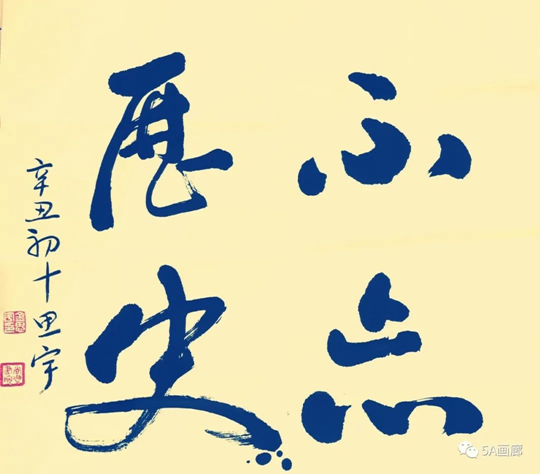 不忘
歷史
辛丑初十思宇
5A画廊